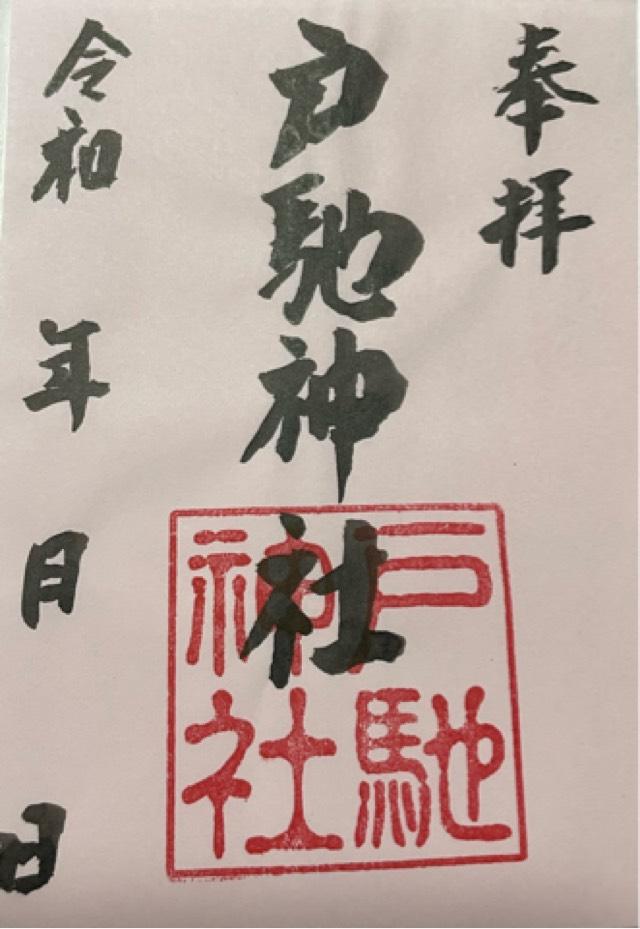 奉拝
戸馳神社
令和 年 月 日
戸馳
神社